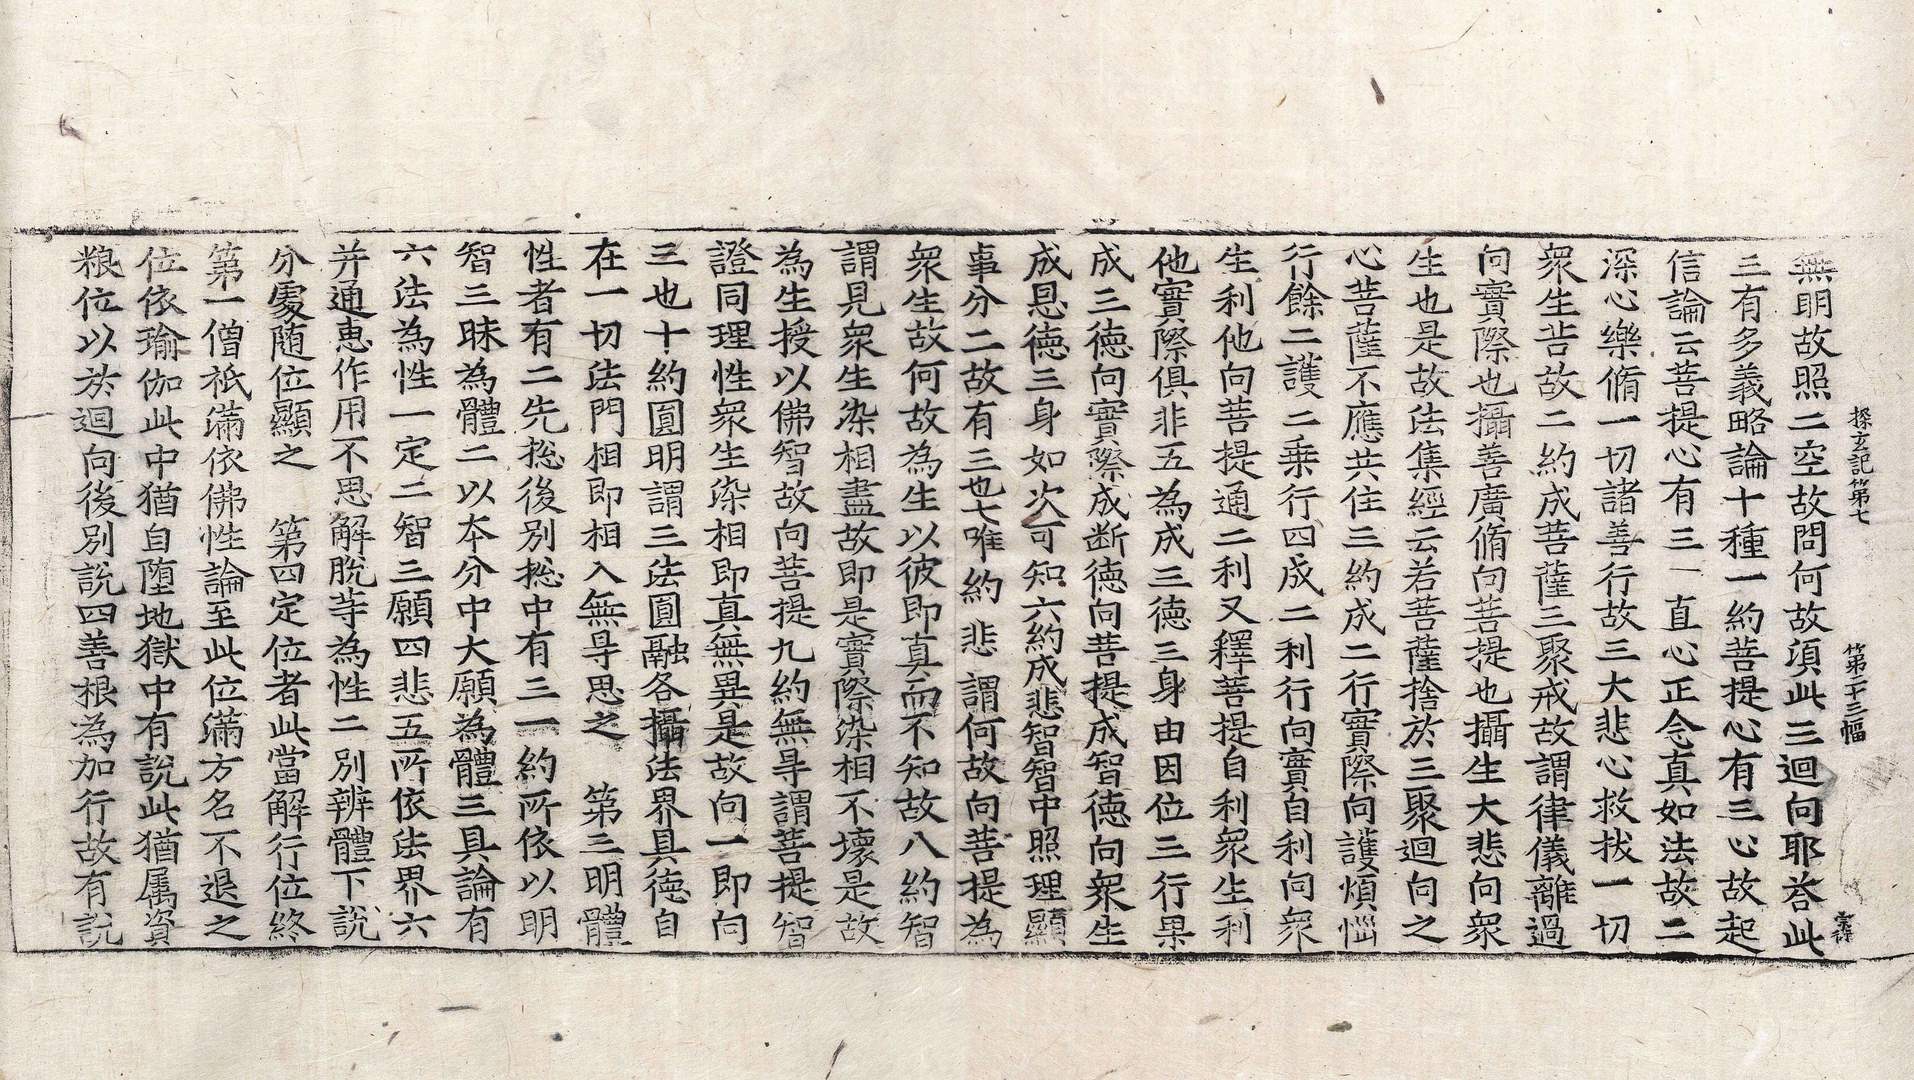 探玄記第七
第二十三幅
無明故照二空故問何故湏此三迴向耶荅此
三有多義略論十種一約菩提心有三心故起
信論云菩提心有三一直心正念真如法故二
深心樂脩一切諸善行故三大悲心救拔一切
衆生苦故二約成菩薩三聚戒故謂律儀離過
向實際也攝善廣脩向菩提也攝生大悲向衆
生也是故法集經云若菩薩捨於三聚迴向之
心菩薩不應共住三約成二行實際向護煩惱
行餘二護二乗行四成二利行向實自利向衆
生利他向菩提通二利又釋菩提自利衆生利
他實際俱非五為成三德三身由因位三行果
成三德向實際成断德向菩提成智德向衆生
成恩德三身如次可知六約成悲智智中照理顯
事分二故有三也七唯約悲謂何故向菩提為
衆生故何故為生以彼即真而不知故八約智
謂見衆生染相盡故即是實際染相不壞是故
為生授以佛智故向菩提九約無㝵謂菩提智
證同理性衆生染相即真無異是故向一即向
三也十約圓明謂三法圓融各攝法界具德自
在一切法門相即相入無㝵思之　第三明體
性者有二先揔後別揔中有三一約所依以明
智三昧為體二以本分中大願為體三具論有
六法為性一定二智三願四悲五所依法界六
并通惠作用不思解脫等為性二別辨體下說
分處随位顯之　第四定位者此當解行位終
第一僧祇滿依佛性論至此位滿方名不退之
位依瑜伽此中猶自堕地獄中有說此猶属資
粮位以於迴向後別說四善根為加行故有說